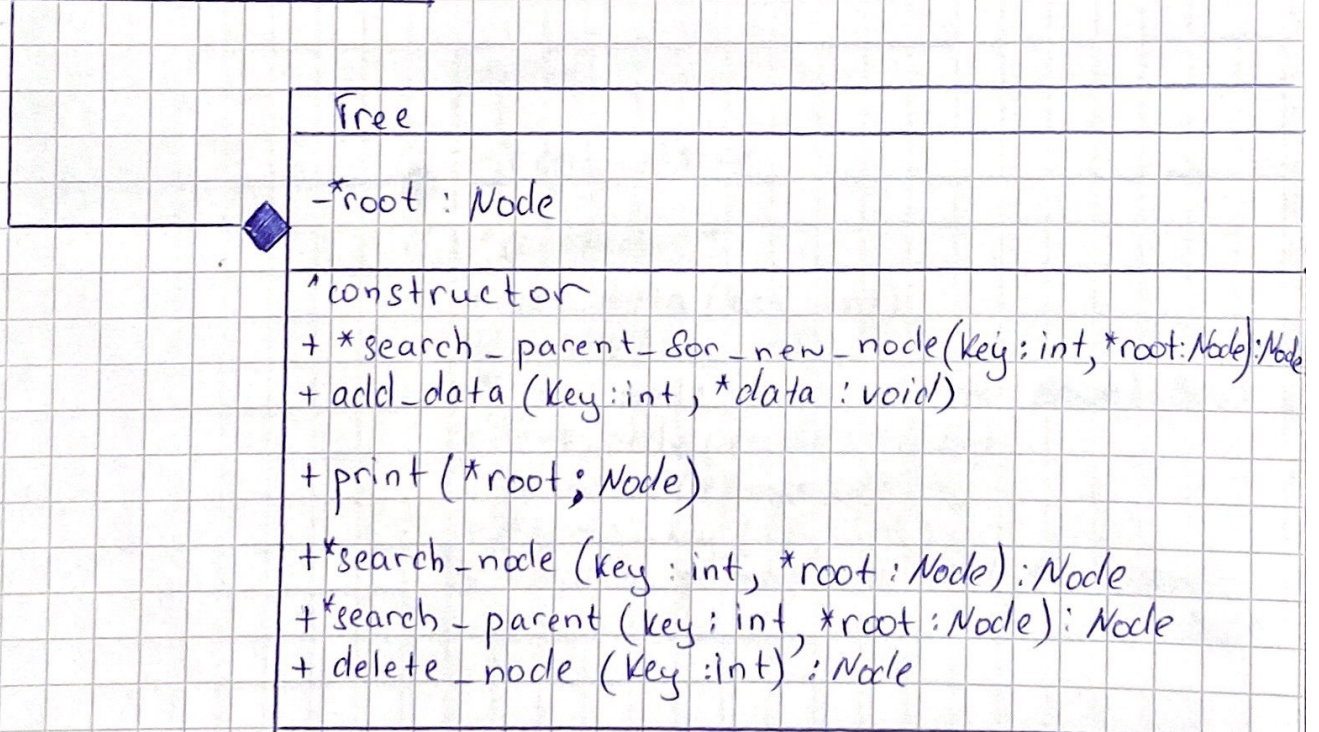 Tree
-*root : Node
^constructor
+ *search_parent_for_new_node(key: int, *root:Node):Node
+ add_data (key:int, *data : void)
+ print (*root; Node)
+*search_node (key : int, *root : Node) : Node
+*search_parent (key: int, *root : Node) : Node
+ delete_node (key :int) : Node